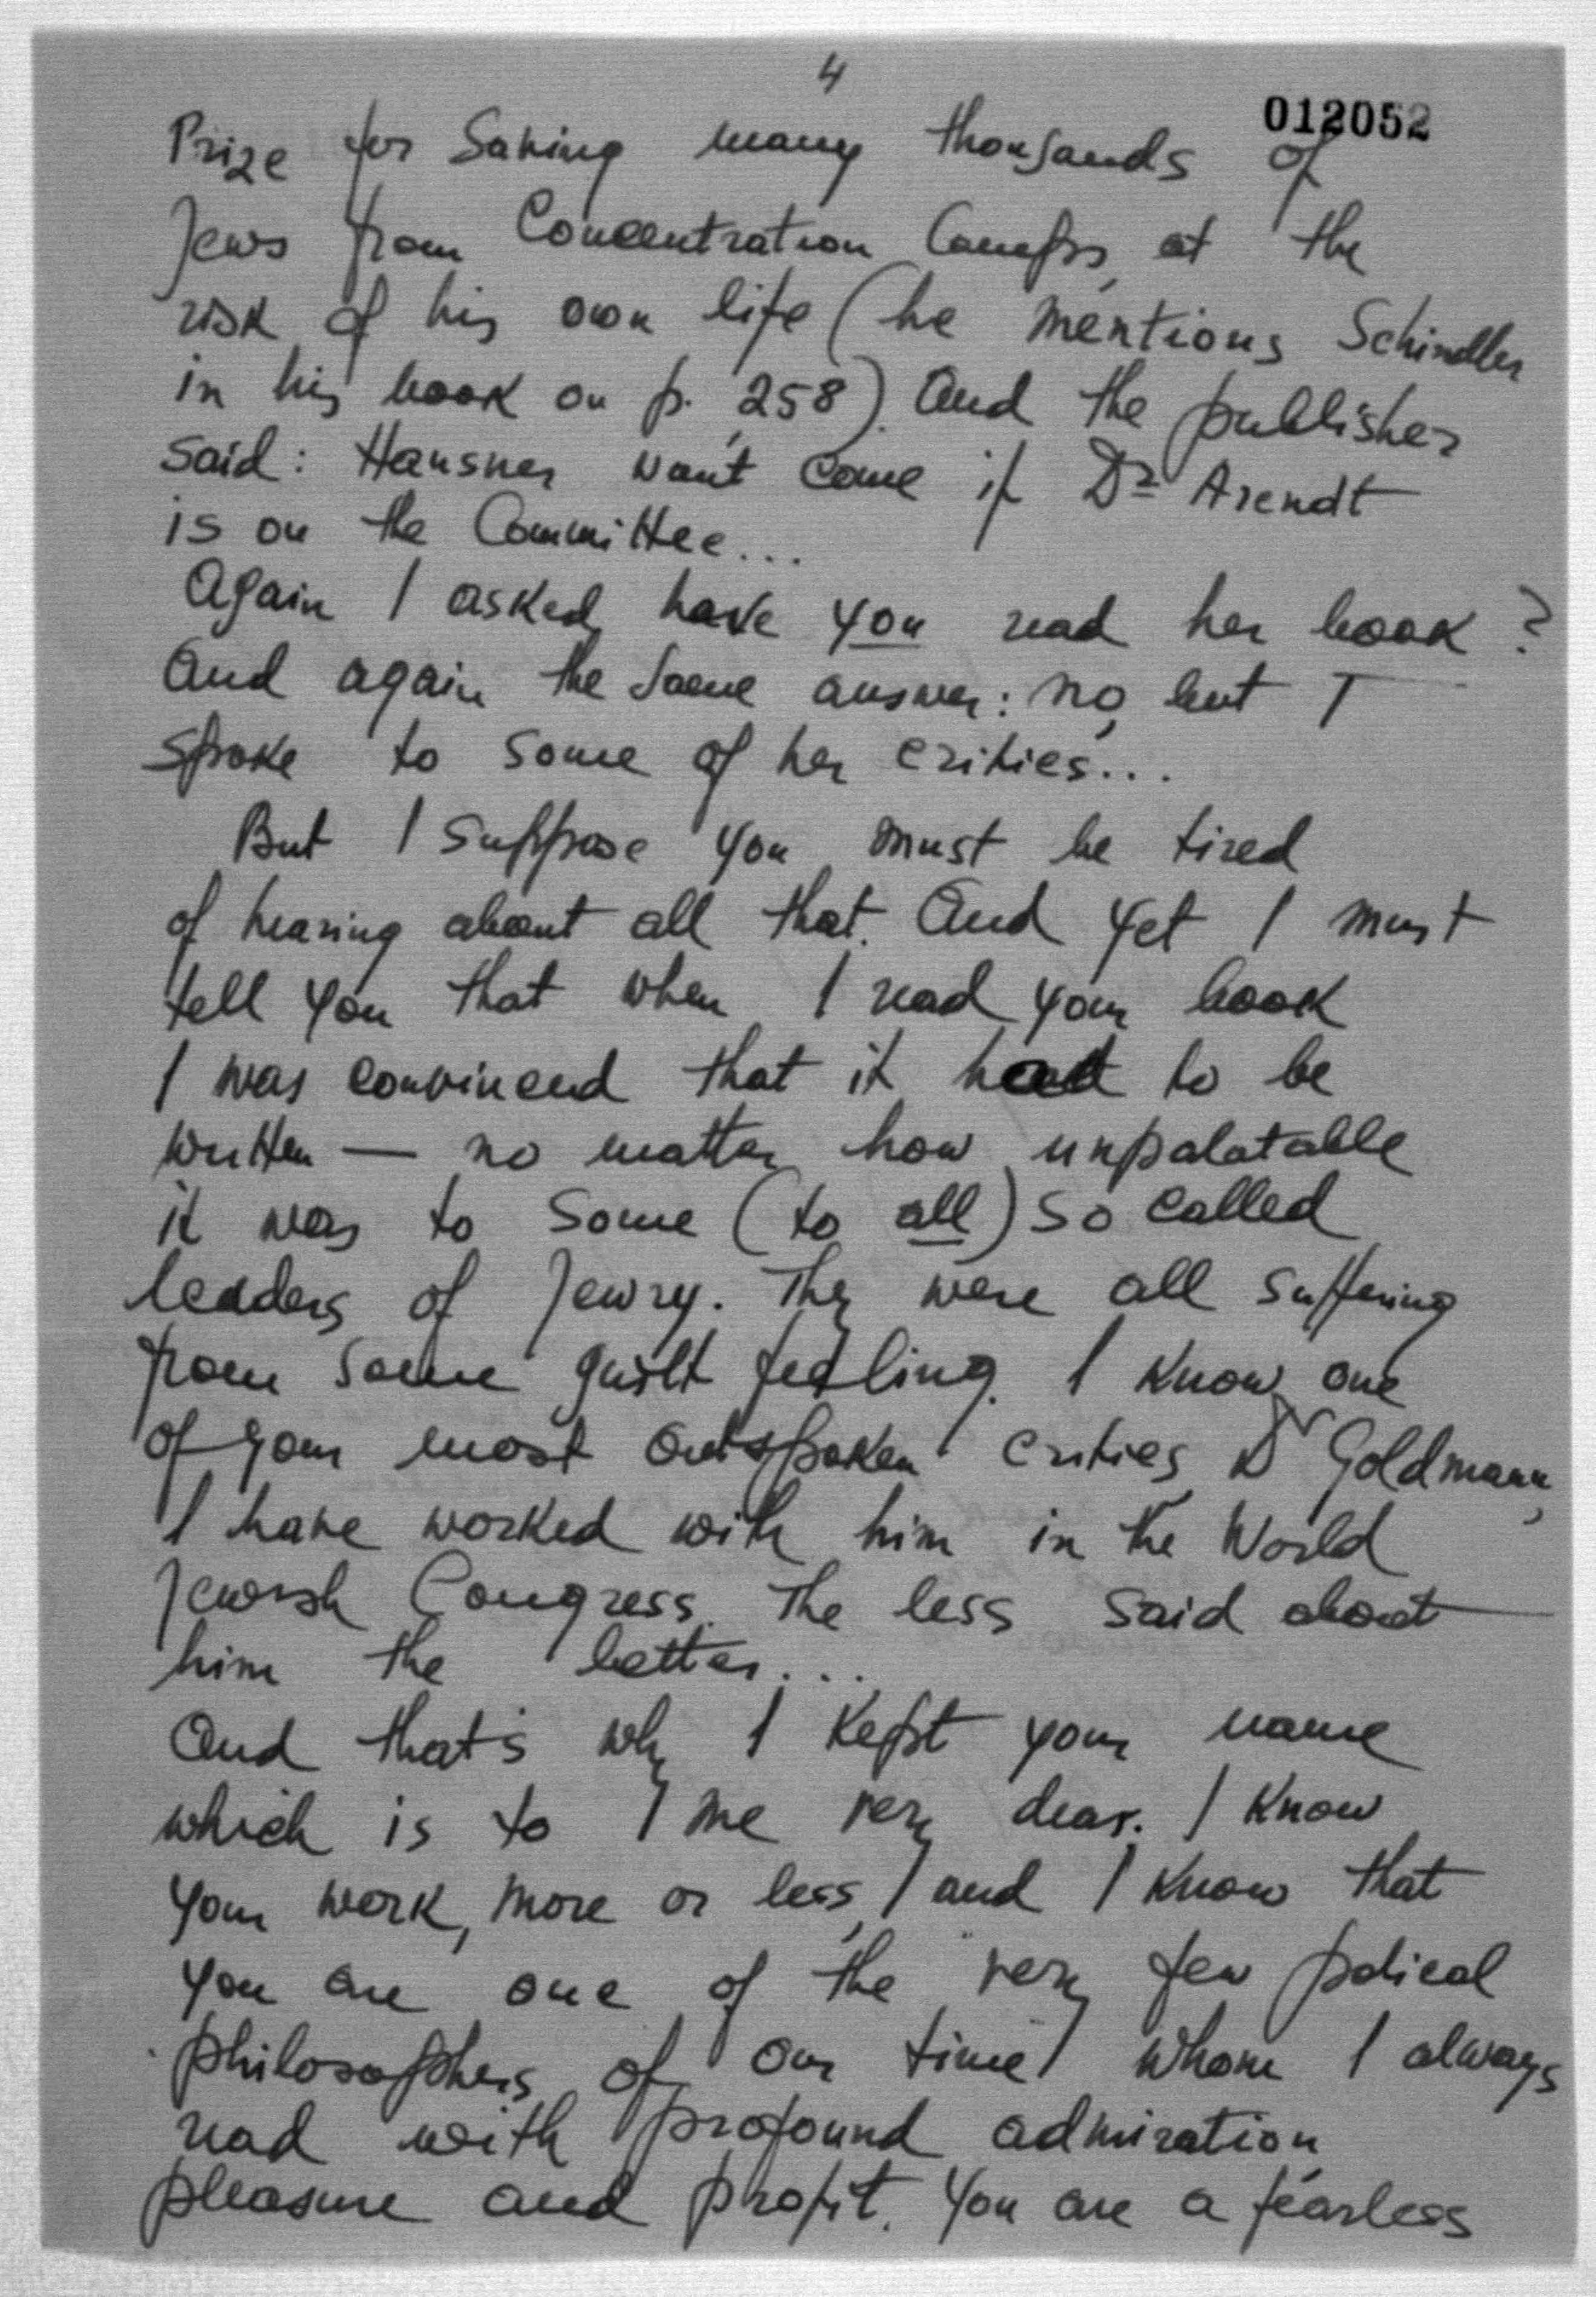 4
012052
Prize for Saving many thousands of
Jews from Concentration Camps, at the
risk of his own life (he mentions Schindler
in his book on p. 258). And the publisher
said: Hausner won't come if Dr Arendt
is on the Committee...
Again I asked, have you read her book?
And again the same answer: no, but I
spoke to some of her critics...
But I suppose you must be tired
of hearing about all that. And yet I must
tell you that when I read your book
I was convinced that it had to be
written — no matter how unpalatable
it was to some (to all) so called
leaders of Jewry. They were all suffering
from some guilt feeling. I know one
of your most outspoken critics, Dr Goldmann,
I have worked with him in the World
Jewish Congress. The less said about
him the better...
And that's why I kept your name
which is to me very dear. I know
your work, more or less, and I know that
you are one of the very few polical
philosophers of our time whom I always
read with profound admiration,
pleasure and profit. You are a fearless